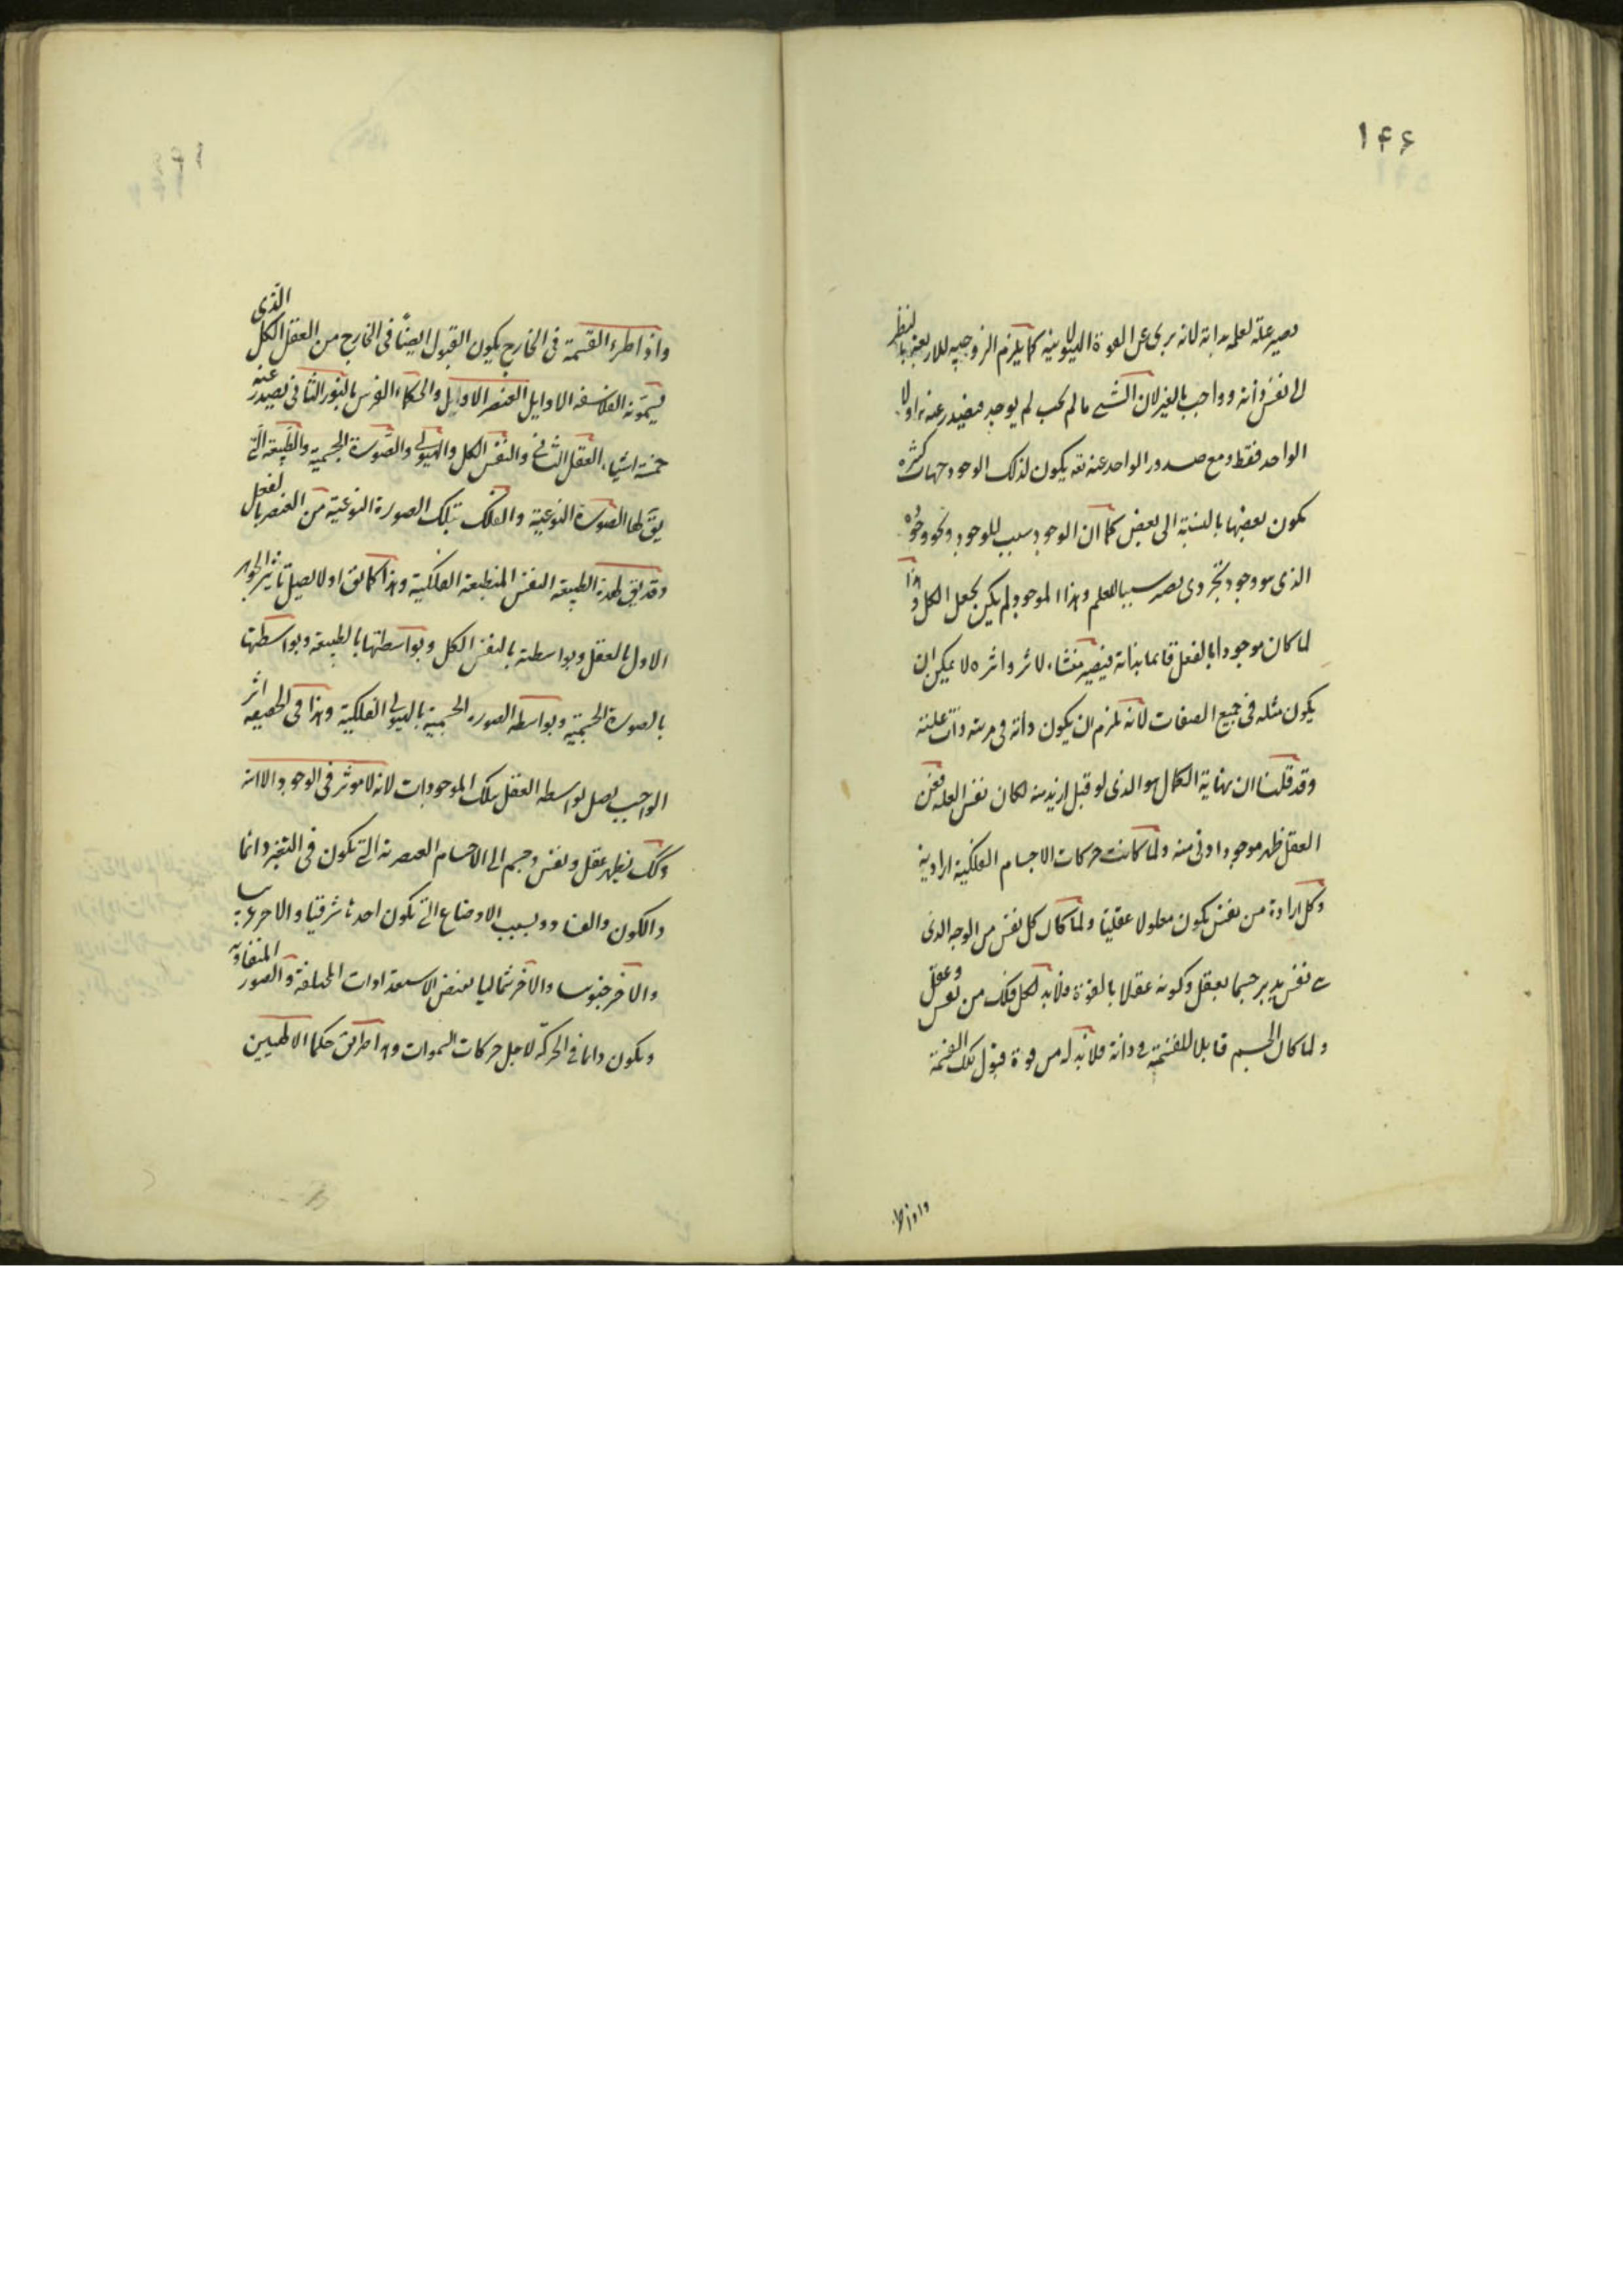 ۱۴۶
يصير علة لعلمه بذاته لانه برى عن القوة الهيولانية كما يلزم الزوجية للاربعة بالنظر
الى نفس ذاته وواجب بالغير لان الشىء ما لم يجب لم يوجد فيصدر عنه اولا
الواحد فقط ومع صدور الواحد عنه تعه يكون لذلك الوجود جهات كثيره
يكون بعضها بالنسبة الى بعض كما ان الوجود سبب للوجود ونحو وجوده
الذى هو وجود تجردى يصير سببا للعلم وهذا الموجود لم يكن يجعل الكل وهذا
لما كان موجودا بالفعل قائما بذاته فيصير منشاء لاثر واثره لا يمكن ان
يكون مثله فى جميع الصفات لانه يلزم ان يكون ذاته فى مرتبة ذات علته
وقد قلنا ان نهاية الكمال هو الذى لو قيل ازيد منه لكان نفس العلة فعن
العقل ظهر موجود ادنى منه ولما كانت حركات الاجسام الفلكية ارادية
وكل ارادة من نفس يكون معلولا عقليا ولما كان كل نفس من الوجه الذى
هى نفس يدبر جسما بعقل وكونه عقلا بالقوة فلابد لكل فلك من نفس وعقل
ولما كان الجسم قابلا للقسمة فى ذاته فلابد له من قوة قبول تلك القسمة
واذا طر
واذا طرء القسمة فى الخارج يكون القبول ايضًا فى الخارج من العقل الكل الذى
يسمونه الفلاسفه الاوايل العنصر الاول والحكماء الفرس بالنور الثانى يصدر عنه
خمسة اشياء العقل الثانى والنفس الكل والهيولى والصورة الجسمية والطبيعة التى
يق لها الصورة النوعية والفلك بتلك الصورة النوعية من العنصر بالفعل
وقد يق لهذه الطبيعة النفس المنطبعة الفلكية وهذا كما يق اولا يصل تاثير الجوهر
الاول بالعقل وبواسطته بالنفس الكل وبواسطتها بالطبيعة وبواسطتها
بالصورة الجسمية وبواسطه الصورة الجسمية بالهيولى الفلكية وهذا فى الحقيقه اثر
الواجب يصل بواسطه العقل بتلك الموجودات لانه لا موثر فى الوجود الا انه
وكك يظهر عقل ونفس وجسم الى الاجسام العنصرية التى تكون فى التغير دائما
والكون والفساد وبسبب الاوضاع التى تكون احدها شرقيا والاخر غربيا
والاخر جنوبيا والاخر شماليا يفيض الاستعدادات المختلفة والصور المتفاوته
ويكون دائما فى الحركة لاجل حركات السموات وهذا طريق حكما الالهيين